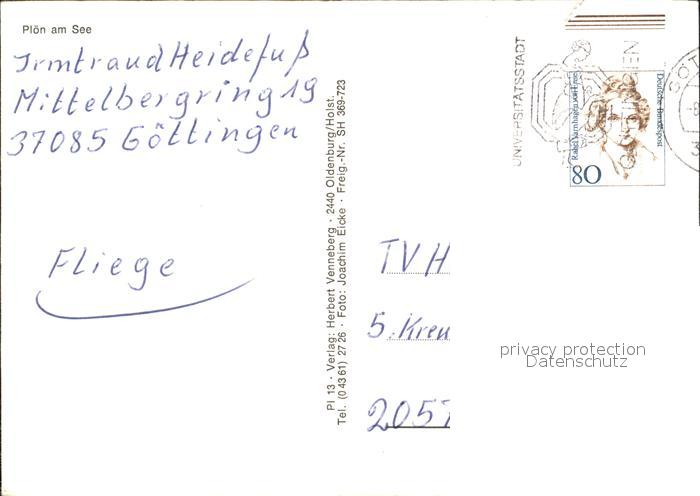 Plön am See
Irmtraud Heidefuß
Mittelbergring 19
37085 Göttingen
Fliege
Pl 13 · Verlag: Herbert Venneberg · 2440 Oldenburg/Holst.
Tel. (0 43 61) 27 26 · Foto: Joachim Eicke · Freig.-Nr. SH 369-723
UNIVERSITÄTSSTADT
Deutsche Bundespost
80
TVH
5. Kreu
2057
privacy protection
Datenschutz